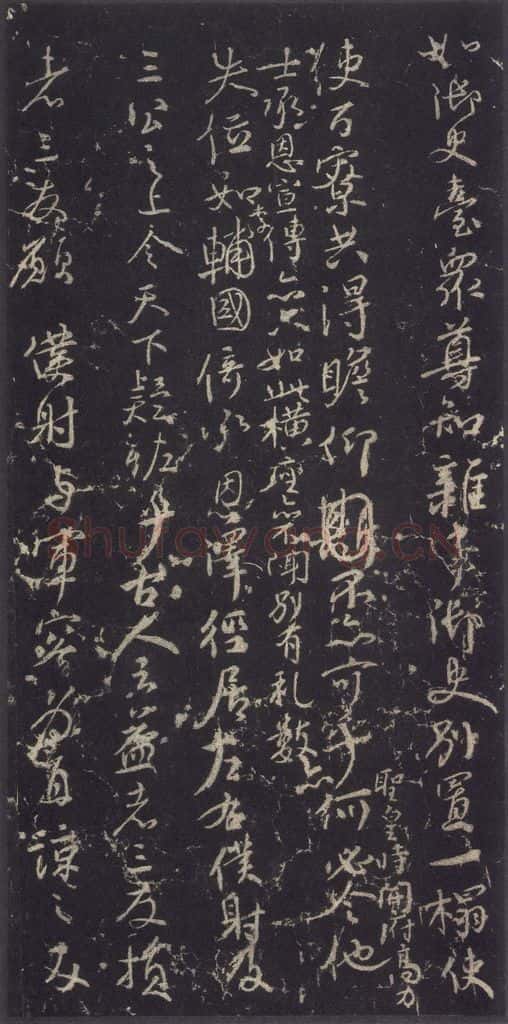 如御史臺眾尊知雜事御史別置一榻使
使百寮共得瞻仰不亦可乎何必令他
聖皇時開府高力
士承恩宣傳亦只如此橫座亦不聞別有礼數亦
失位如李輔國倚承恩澤徑居左右僕射及
三公之上令天下疑恠乎古人云益者三友損
者三友願僕射與軍容為直諒之友
Shufawang.CN